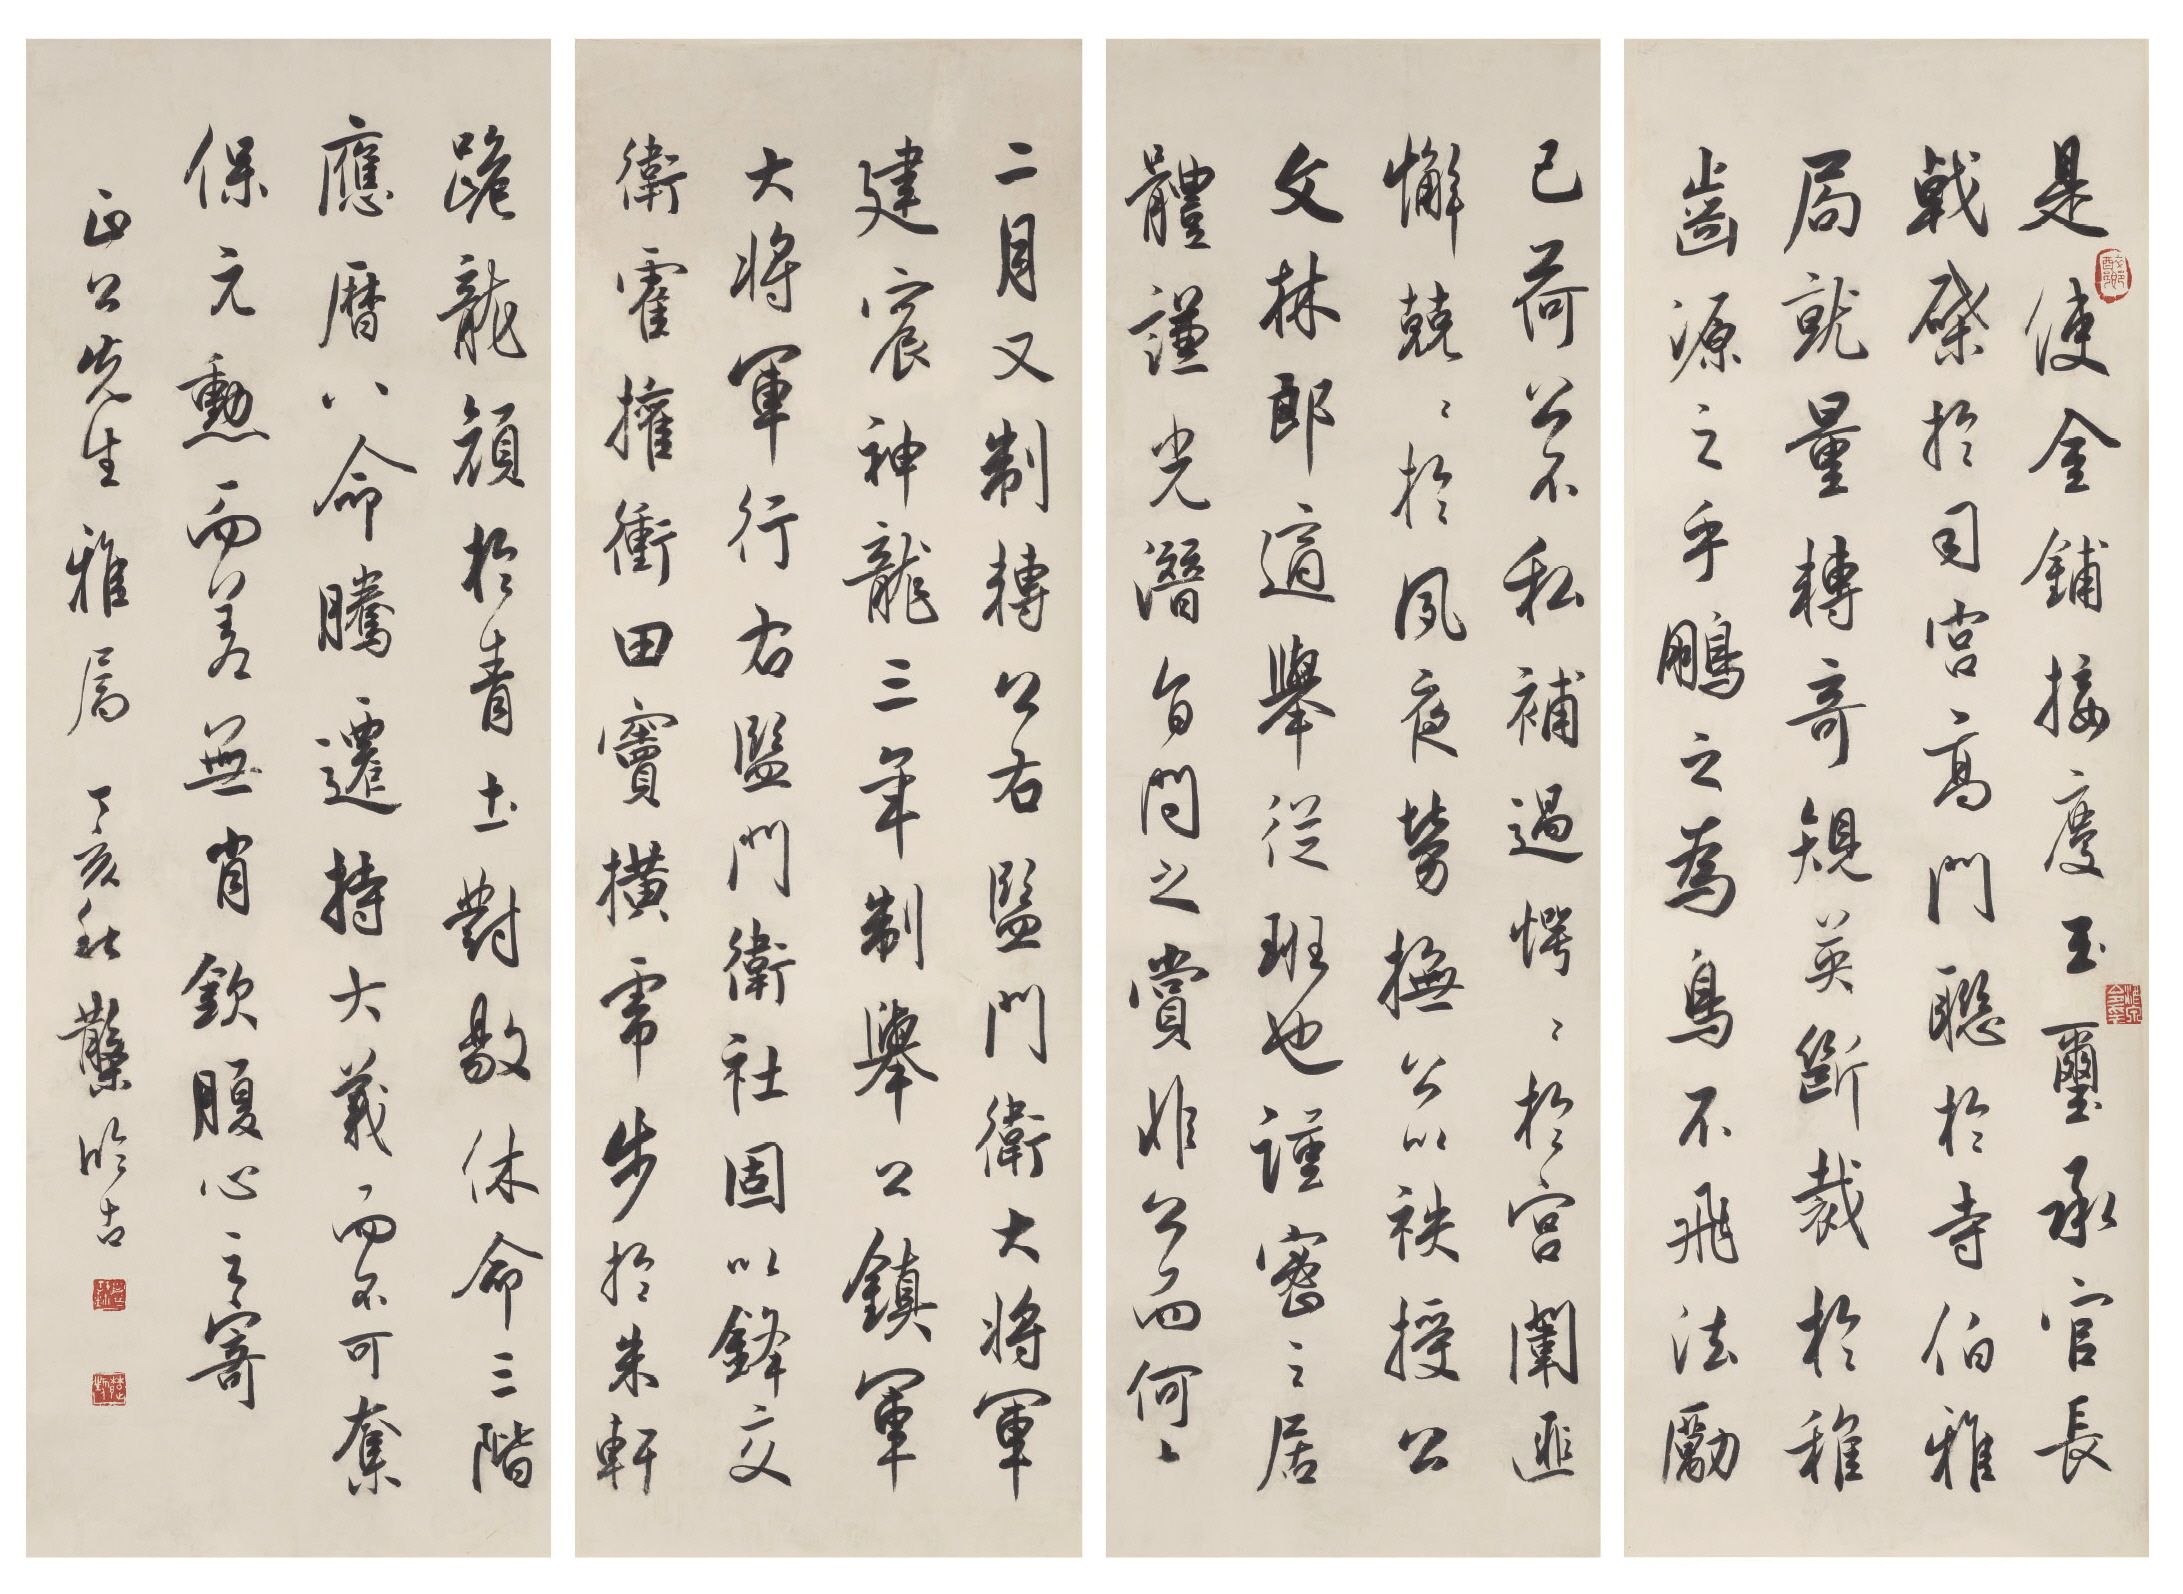 是使金鋪接慶玉璽承官長
戟棨於司宫高門聡於寺伯雅
局就量轉奇規英斷裁於稚
齒源之乎鵬之為鳥不飛法勵
已荷公不私補過愕〻於宫闈匪
懈兢〻於夙夜勞撫公以袟授公
文林郎適舉從班也謹密之居
體謹光潛自問之賞非公而何〻
二月又制轉公右監門衛大将軍
建宸神龍三年制舉公鎮軍
大将軍行右監門衛社固以鋒交
衛霍擁衝田竇橫霄步於朱軒
跪龍顔於青土對敭休命三階
應曆八命騰遷持大義而不可奪
保元勳而若無肖欽腹心之寄
正公先生雅屬 丁亥秋